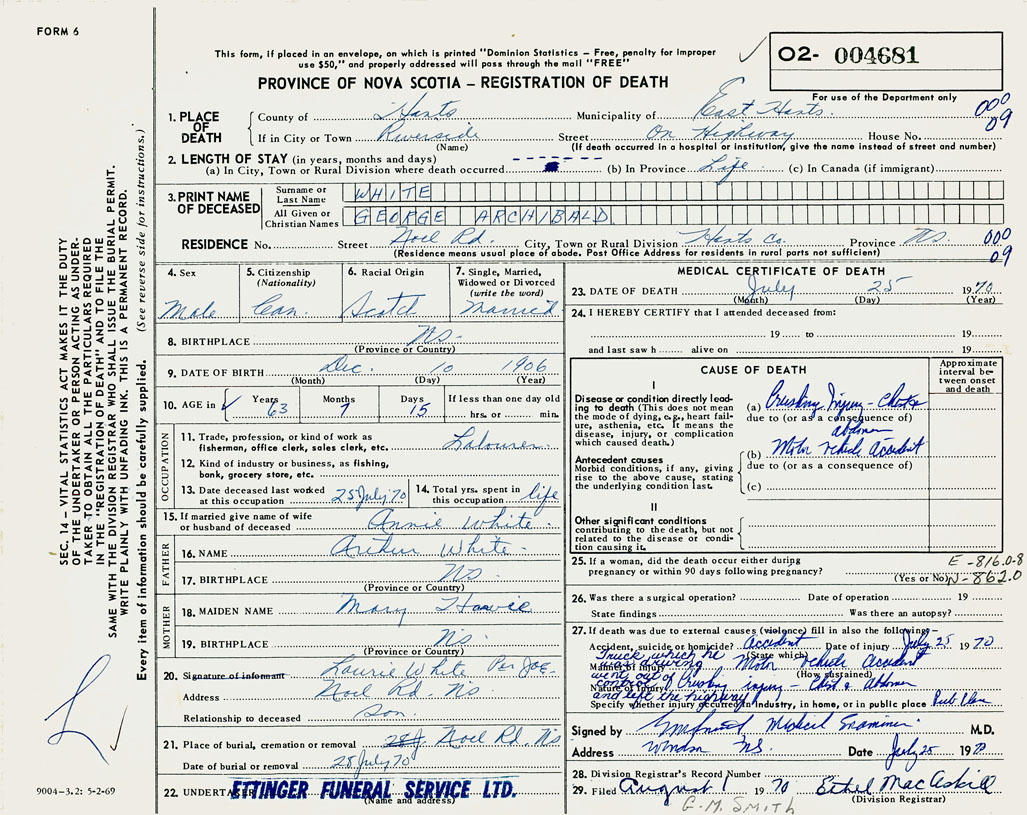 FORM 6
This form, if placed in an envelope, on which is printed "Dominion Statistics – Free, penalty for improper
use $50," and properly addressed will pass through the mail "FREE"
02- 004681
PROVINCE OF NOVA SCOTIA – REGISTRATION OF DEATH
For use of the Department only
000
09
1. PLACE OF DEATH
County of Hants Municipality of East Hants
If in City or Town Riverside Street On Highway House No.
(Name) (If death occurred in a hospital or institution, give the name instead of street and number)
2. LENGTH OF STAY (in years, months and days)
(a) In City, Town or Rural Division where death occurred (b) In Province Life (c) In Canada (if immigrant)
3. PRINT NAME OF DECEASED
Surname or Last Name WHITE
All Given or Christian Names GEORGE ARCHIBALD
RESIDENCE No. Street Noel Rd. City, Town or Rural Division Hants Co. Province NS. 000
(Residence means usual place of abode. Post Office Address for residents in rural parts not sufficient) 09
4. Sex Male
5. Citizenship (Nationality) Can.
6. Racial Origin Scotch
7. Single, Married, Widowed or Divorced (write the word) Married
8. BIRTHPLACE NS.
(Province or Country)
9. DATE OF BIRTH Dec. 10 1906
(Month) (Day) (Year)
10. AGE in Years 63 Months 7 Days 15 If less than one day old
hrs. or min.
OCCUPATION
11. Trade, profession, or kind of work as
fisherman, office clerk, sales clerk, etc. Labourer
12. Kind of industry or business, as fishing,
bank, grocery store, etc.
13. Date deceased last worked at this occupation 25 July 70
14. Total yrs. spent in this occupation life
15. If married give name of wife
or husband of deceased Annie White
FATHER
16. NAME Arthur White
17. BIRTHPLACE NS
(Province or Country)
MOTHER
18. MAIDEN NAME Mary Howie
19. BIRTHPLACE NS.
(Province or Country)
20. Signature of informant Laurie White Per JOE
Address Noel Rd. NS.
Relationship to deceased Son.
21. Place of burial, cremation or removal Noel Rd, NS
Date of burial or removal 28 July 70
22. UNDERTAKER ETTINGER FUNERAL SERVICE LTD.
(Name and address)
MEDICAL CERTIFICATE OF DEATH
23. DATE OF DEATH July 25 1970
(Month) (Day) (Year)
24. I HEREBY CERTIFY that I attended deceased from:
19 to 19
and last saw h alive on 19
CAUSE OF DEATH
Approximate interval between onset and death
I
Disease or condition directly leading to death (This does not mean the mode of dying, e.g., heart failure, asthenia, etc. It means the disease, injury, or complication which caused death.)
(a) Crushing Injury - Chest &
due to (or as a consequence of)
abdomen
Antecedent causes
Morbid conditions, if any, giving rise to the above cause, stating the underlying condition last.
(b) Motor Vehicle Accident
due to (or as a consequence of)
(c)
II
Other significant conditions
contributing to the death, but not related to the disease or condition causing it.
25. If a woman, did the death occur either during
pregnancy or within 90 days following pregnancy? (Yes or No)
E-816.0-8
N-862.0
26. Was there a surgical operation? Date of operation 19
State findings Was there an autopsy?
27. If death was due to external causes (violence) fill in also the following–
Accident, suicide or homicide? Accident Date of injury July 25 1970
(State which)
Truck which he
was driving
went out of
control
and left the highway
Manner of injury Motor Vehicle Accident
(How sustained)
Nature of injury Crushing injury - Chest & Abdomen
Specify whether injury occurred in industry, in home, or in public place
Signed by Medical Examiner M.D.
Address Windsor NS. Date July 25 1970
28. Division Registrar's Record Number
29. Filed August 1 1970 Ethel MacAskill
(Division Registrar)
G.M. SMITH
SEC. 14 – VITAL STATISTICS ACT MAKES IT THE DUTY
OF THE UNDERTAKER OR PERSON ACTING AS UNDERTAKER
TO OBTAIN ALL THE PARTICULARS REQUIRED
IN THE "REGISTRATION OF DEATH" AND TO FILE THE
SAME WITH THE DIVISION REGISTRAR WHO SHALL ISSUE THE BURIAL PERMIT.
WRITE PLAINLY WITH UNFADING INK. THIS IS A PERMANENT RECORD.
Every item of information should be carefully supplied. (See reverse side for instructions.)
9004-3.2: 5-2-69